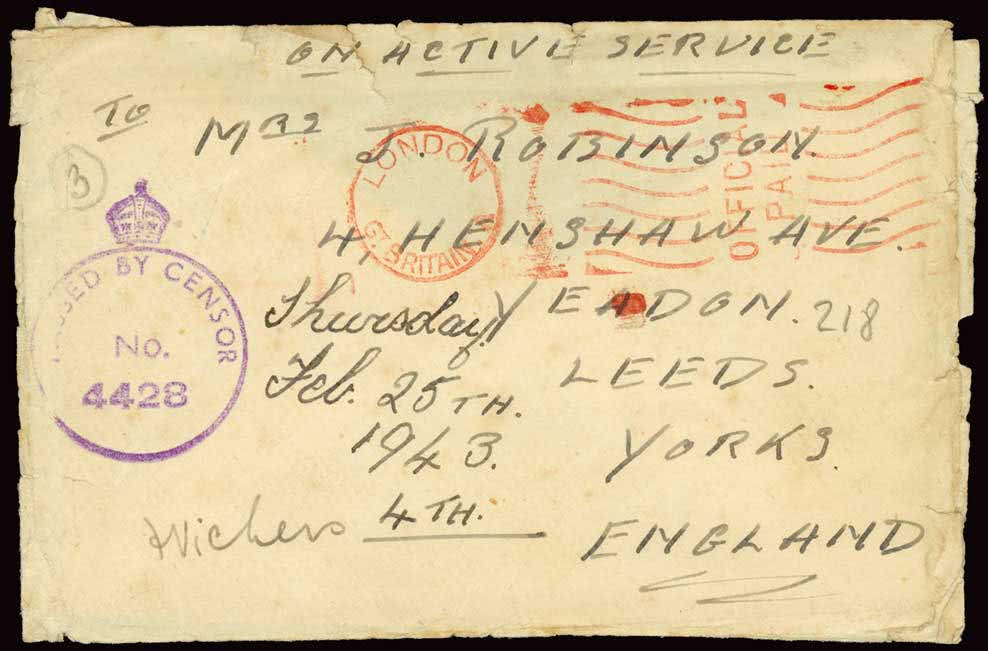 ON ACTIVE SERVICE
TO
MRS J. ROBINSON.
LONDON
GT. BRITAIN
OFFICIAL
PAID
3
4, HENSHAW AVE.
PASSED BY CENSOR
No.
4428
YEADON. 218
Thursday
Feb. 25TH.
1943.
LEEDS.
YORKS.
4TH.
ENGLAND